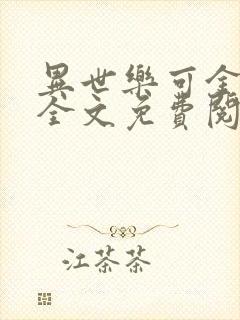 異世樂可全
全文免費閱
江茶茶